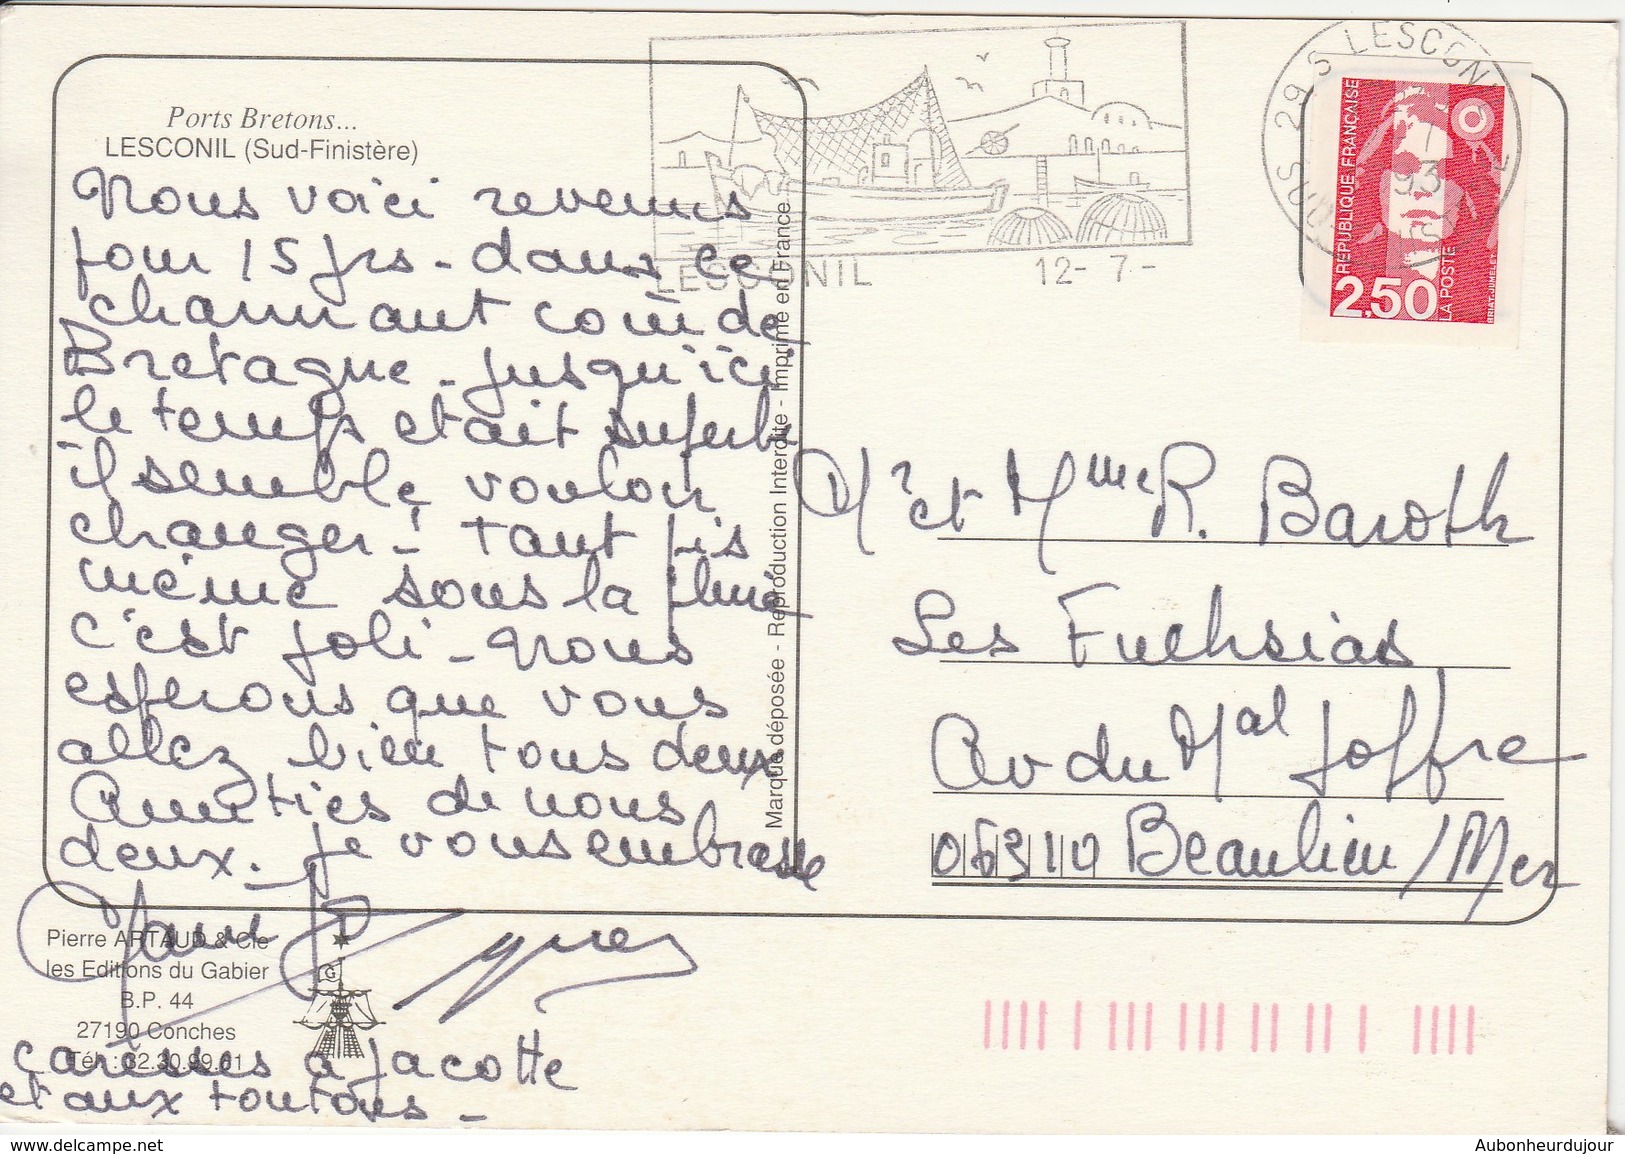 Ports Bretons...
LESCONIL (Sud-Finistère)
Nous voici revenus
pour 15 jrs - dans ce
charmant coin de
Bretagne - jusqu'ici
le temps était superbe
il semble vouloir
changer ! tant pis
même sous la pluie
c'est joli - nous
espérons que vous
allez bien tous deux
Amitiés de nous
deux. je vous embrasse
Pierre ARTAUD & Cie
les Editions du Gabier
B.P. 44
27190 Conches
Tél. : 32.30.99.61
caresses à Jacotte
et aux toutous -
Marque déposée - Reproduction Interdite - Imprimé en France
LESCONIL 12- 7-
29 S LESCONIL
93
REPUBLIQUE FRANÇAISE
2,50
LA POSTE
BRIAT-JUMELET
Mr et Mme R. Baroth
Les Fuchsias
Av du Mal Joffre
06310 Beaulieu/Mer
www.delcampe.net
Aubonheurdujour